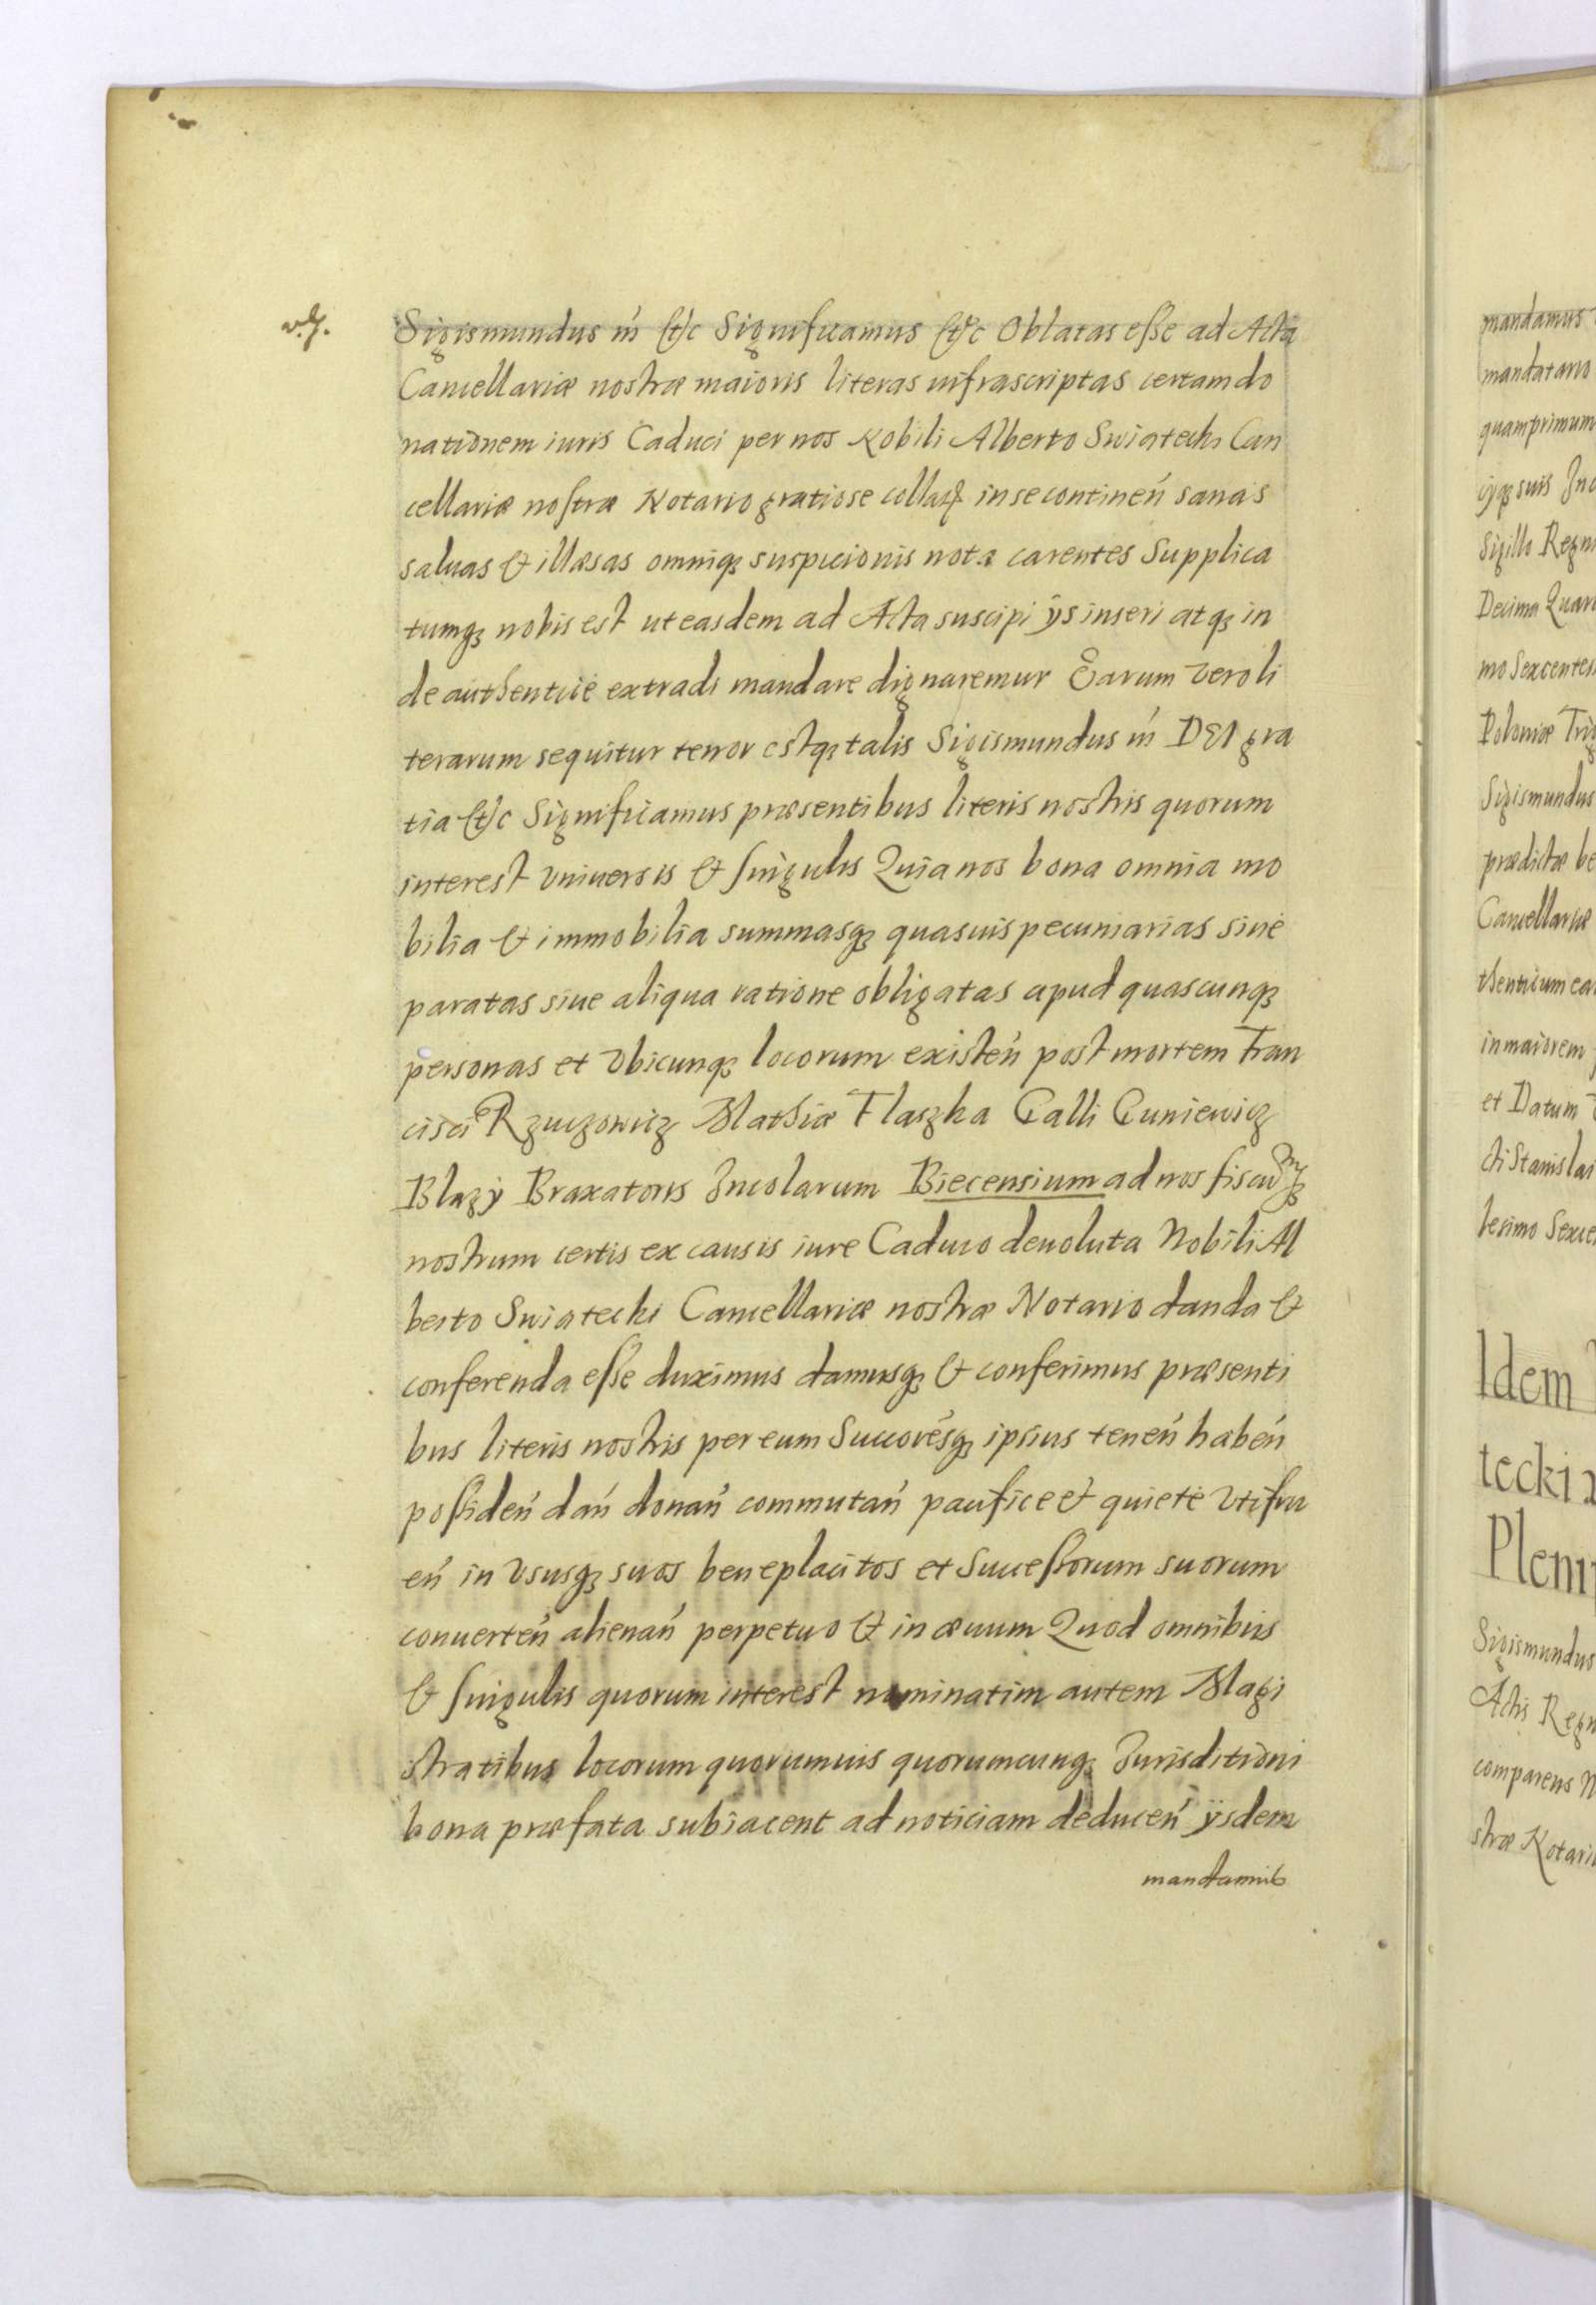 Sigismundus iii etc Significamus etc Oblatas esse ad Acta
Cancellariæ nostræ maioris literas infrascriptas certam do
nationem iuris Caduci per nos Nobili Alberto Swiatecki Can
cellariæ nostræ Notario gratiose in se continen sanas
saluas & illæsas omniq suspicionis nota carentes Supplica
tumq nobis est ut easdem ad Acta suscipi ÿs inseri atq in
de authenticè extradi mandare dignaremur Earum vero li
terarum sequitur tenor estq talis Sigismundus iii DEI gra
tia etc Significamus præsentibus literis nostris quorum
interest vniuersis & singulis Quia nos bona omnia mo
bilia & immobilia summasq quasuis pecuniarias siue
paratas siue aliqua ratione obligatas apud quascunq
personas et vbicunq locorum existen post mortem Fran
cisci Rzuczowicz Mathiæ Flaszka Galli Cuniewicz
Blazÿ Braxatoris Incolarum Biecensium ad nos fiscumq
nostrum certis ex causis iure Caduco deuoluta Nobili Al
berto Swiatecki Cancellariæ nostræ Notario danda &
conferenda esse duximus damusq & conferimus præsenti
bus literis nostris per eum Succoresq ipsius tenen haben
possiden dan donan commutan pacifice & quiete vtifru
en in vsusq suos beneplacitos et Successorum suorum
conuerten alienan perpetuo & in æuum Quod omnibus
& singulis quorum interest nominatim autem Magi
stratibus locorum quorumuis quorumcunq Iurisditioni
bona præfata subiacent ad noticiam deducen ÿsdem
mandamus
mandamus
mandatario
quamprimum
suis
Sigillo Regni
Decima Quar
mo Sexcentes
Poloniæ Trig
Sigismundus
prædictæ be
Cancellariæ
thenticum ea
in maiorem
et Datum
cti Stanislai
lesimo Sexce
Idem
tecki
Pleni
Sigismundus
Actis Regn
comparens N
stræ Notari